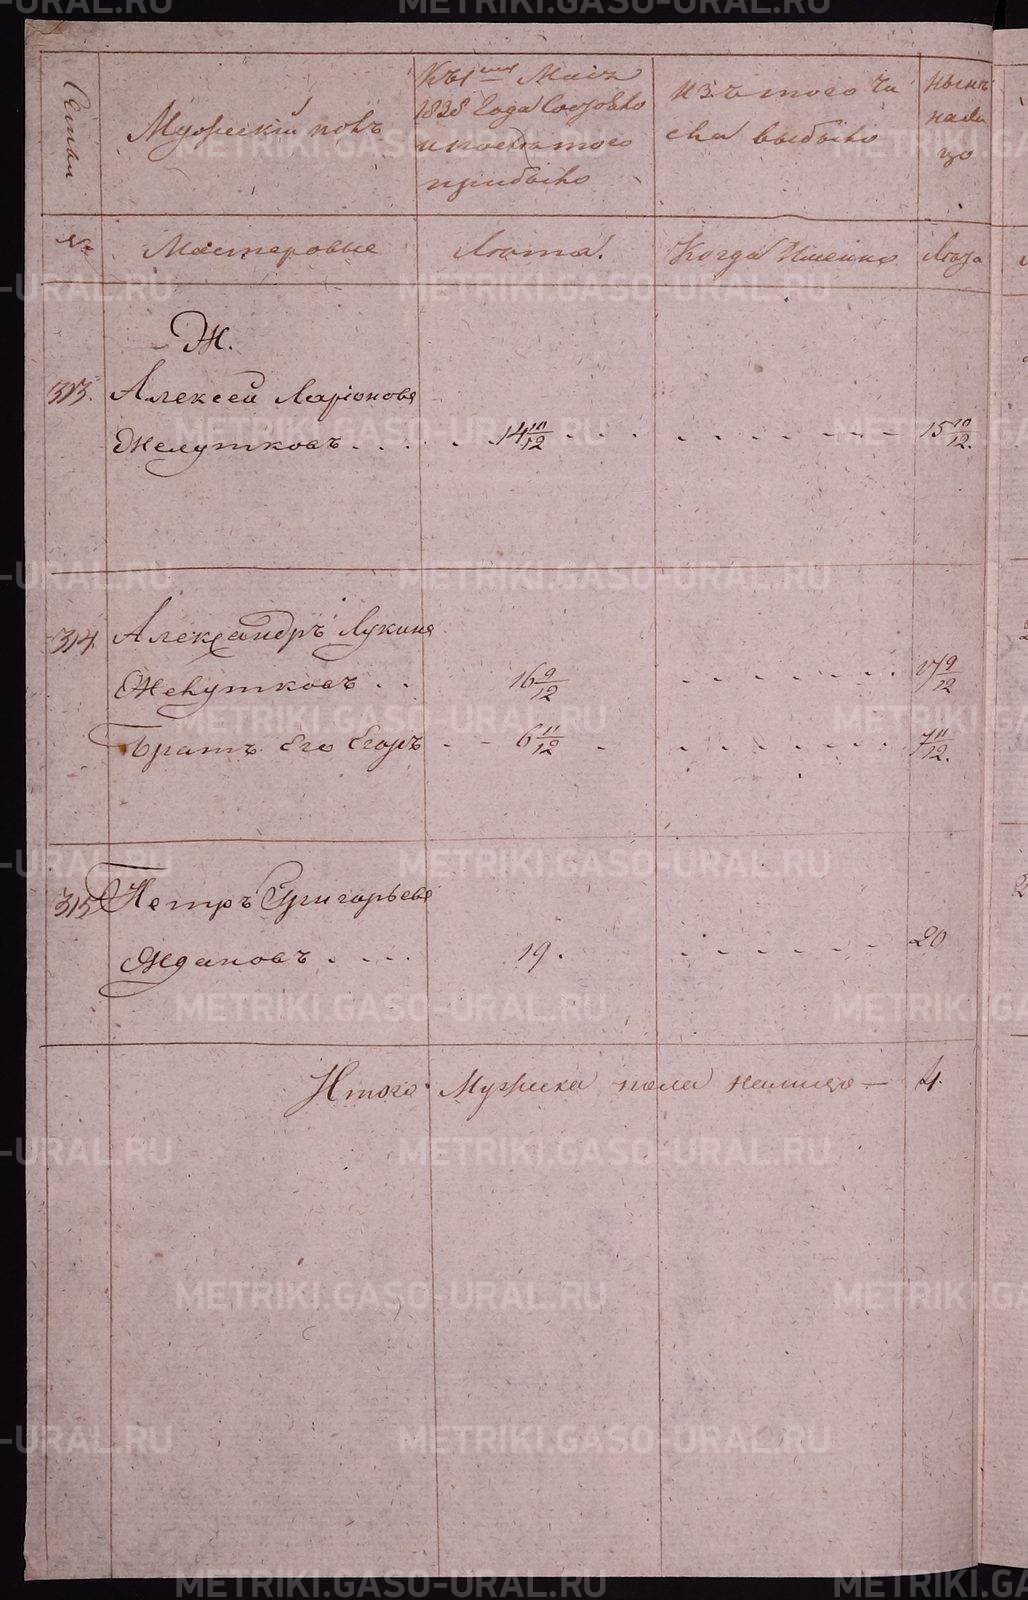 Семьи
Мужескiй полъ
Къ 1му Маiя
1828 года Состояло
и после того
прибыло
изъ того чи
сла выбыло
нынѣ
нали
цо
№
Мастеровые
Лѣта.
Когда Именно
Лѣта
Ж.
313. Алексей Ларiоновъ
Желутковъ . . . . . 14 10/12 . . . . . . . . 15 10/12.
314 Александръ Лукинъ
Желутковъ . . 16 9/12 . . . . . . 17 9/12
Братъ Его Егоръ - - 6 11/12 - . . . . . . 7 11/12.
315 Петръ Григорьевъ
Ждановъ . . . . 19. . . . . . . 20
Итого Мужеска пола налицо — 4.
METRIKI.GASO-URAL.RU